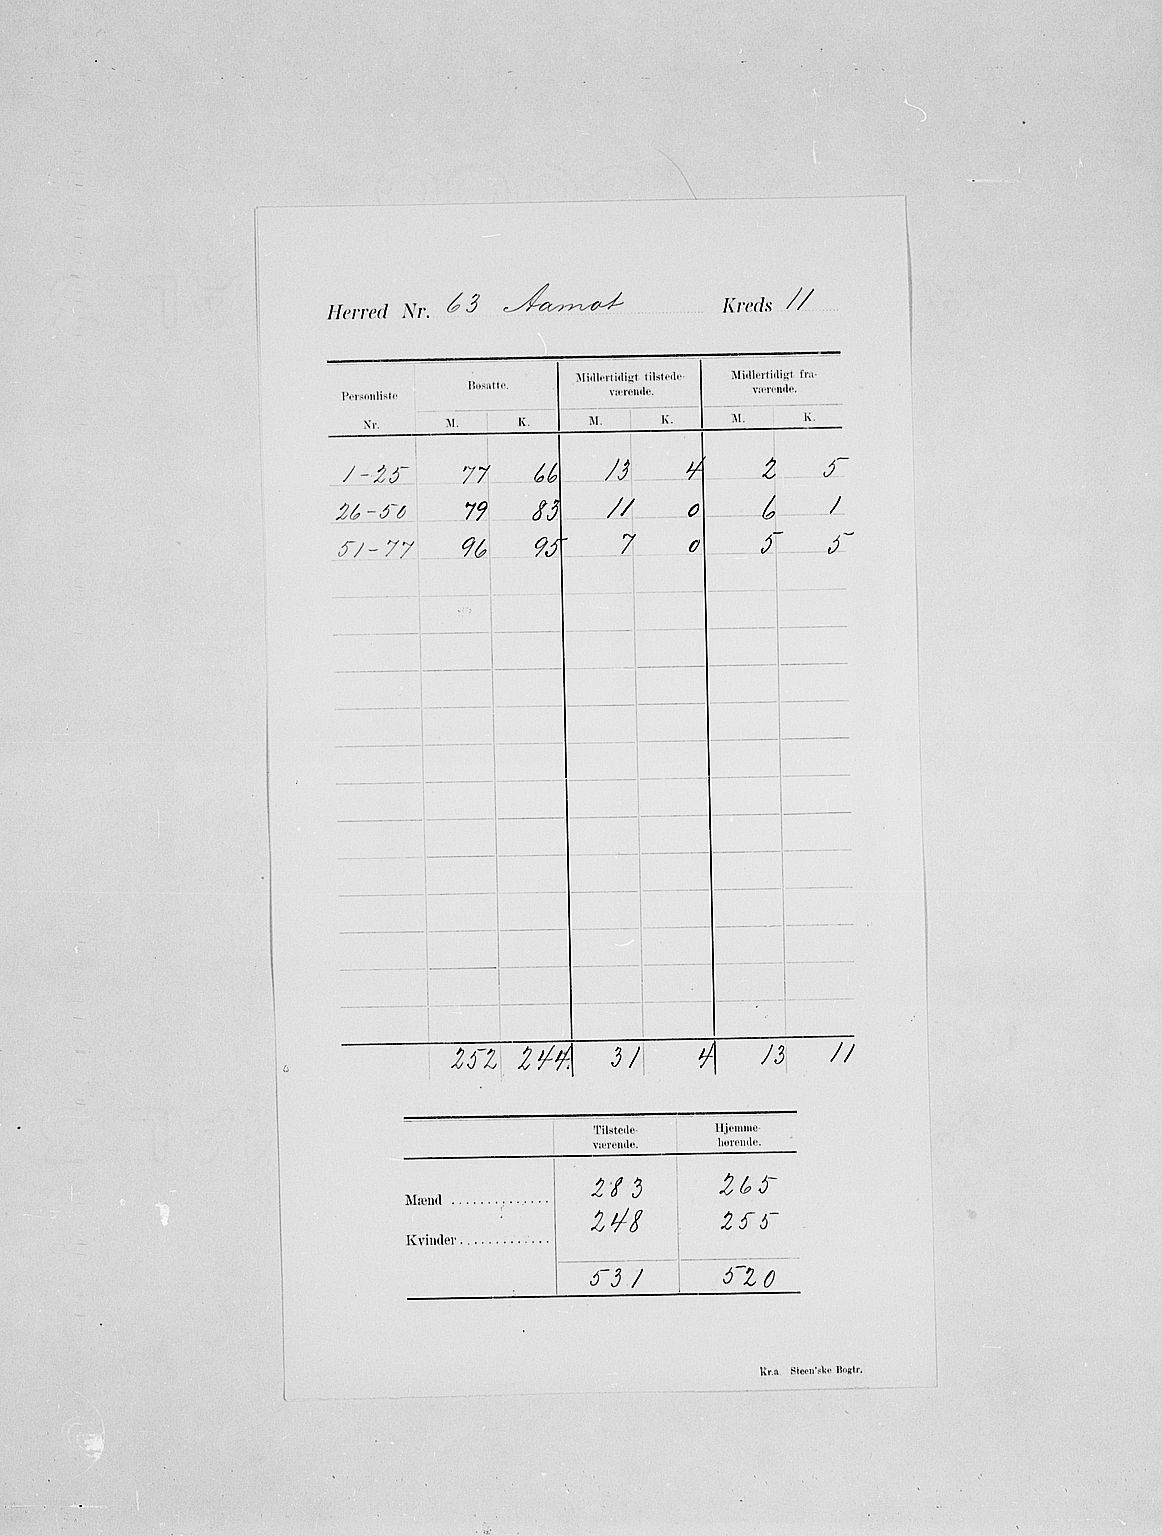 Herred Nr. 63 Aamot Kreds 11
Personliste Nr. Bosatte. Midlertidigt tilstede- værende. Midlertidigt fra- værende.
M. K. M. K. M. K.
1-25 77 66 13 4 2 5
26-50 79 83 11 0 6 1
51-77 96 95 7 0 5 5
252 244. 31 4 13 11
Tilstede- værende. Hjemme- hørende.
Mænd .............. 283 265
Kvinder............. 248 255
531 520
Kr.a Steen'ske Bogtr.